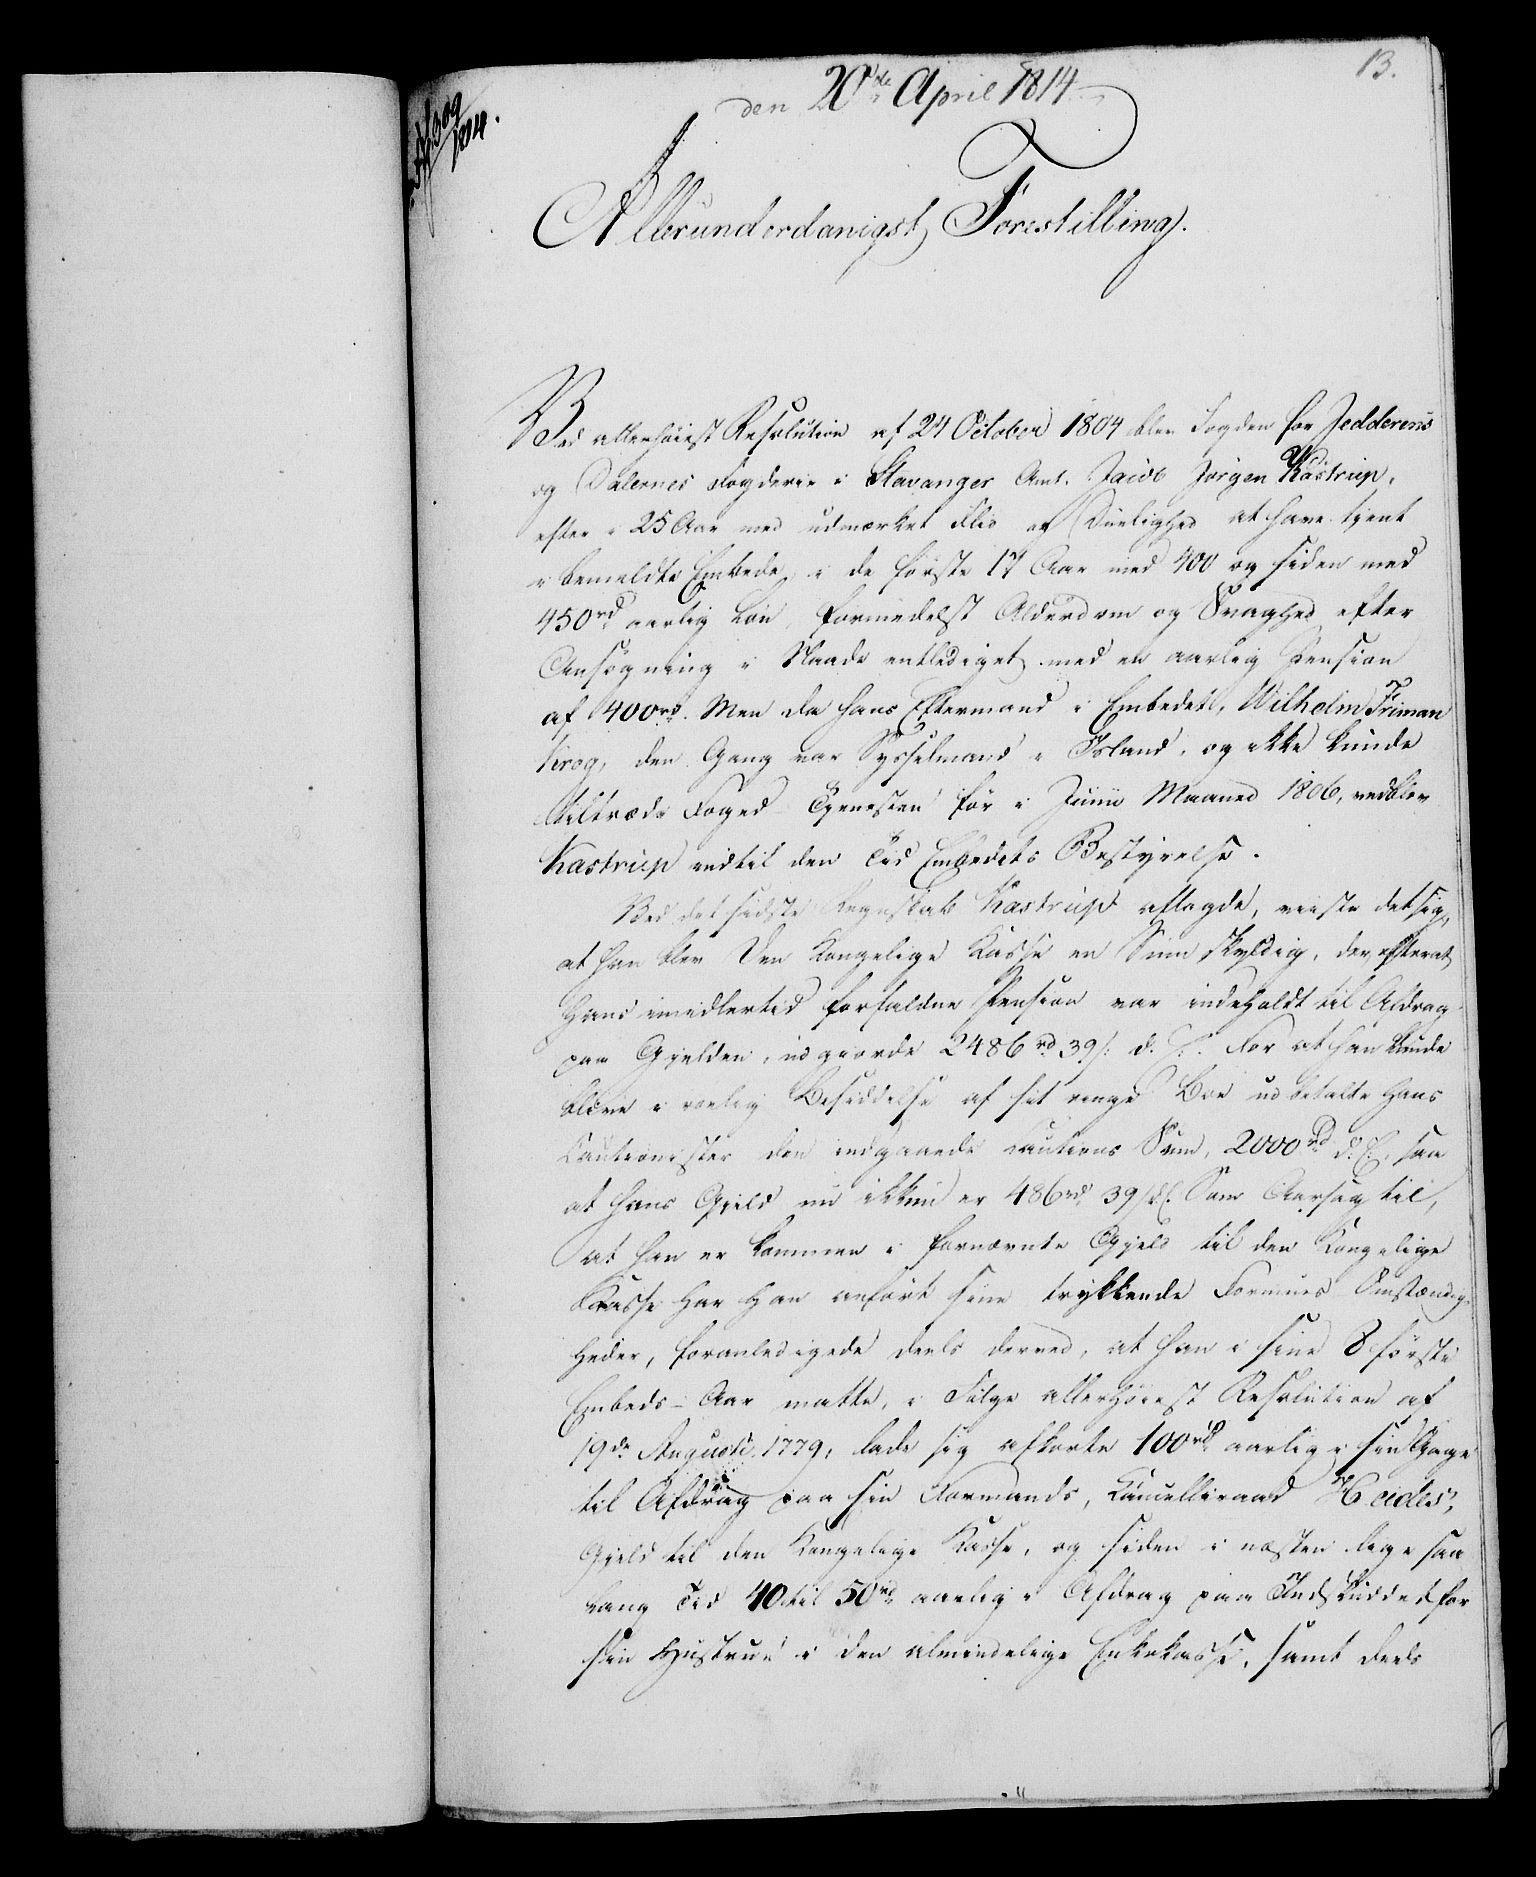 13.
den 20de April 1814
309
1814.
Allerunderdanigst Forestilling.
Ved allerhöiest Resolution af 24 October 1804 blev Fogden for Jedderens
og Dalernes Fogderie i Stavanger Amt, Jacob Jörgen Kastrup,
efter i 25 Aar med udmærket Flid og Duelighed at have tjent
i bemeldte Embede, i de förste 17 Aar med 400 og siden med
450rd aarlig Lön, formedelst Alderdom og Svaghed efter
Ansögning i Naade entlediget med en aarlig Pension
af 400rd. Men da hans Eftermand i Embedet, Wilhelm Friman
Krog, den Gang var Sysselmand i Island, og ikke kunde
tiltræde Foged Tjenesten för i Junii Maaned 1806, vedblev
Kastrup indtil den Tid Embedets Bestyrelse.
Ved det sidste Regnskab Kastrup aflagde, viiste det sig,
at han blev Den Kongelige Kasse en Sum skyldig, der, efterat
hans imidlertid forfaldne Pension var indeholdt til Afdrag
paa Gjelden, udgiorde 2486rd 39 s. d. C. For at han kunde
blive i rolig Besiddelse af sit ringe Boe udbetalte hans
Cautionister den indgaaede Cautions Sum, 2000rd d. C., saa
at hans Gjeld nu ikkun er 486rd 39 s d. C. Som Aarsag til,
at han er kommen i fornævnte Gjeld til den Kongelige
Kasse har han anfört sine trykkende Formues Omstændig-
heder, foranledigede deels derved, at han i sine 8 förste
Embeds-Aar matte, i Fölge allerhöiest Resolution af
19de Augusti 1779, lade sig afkorte 100rd aarlig i sin Gage
til Afdrag paa sin Formands, Cancelliraad Heides,
Gjeld til den Kongelige Kasse, og siden i næsten lige saa
lang Tid 40 til 50rd aarlig i Afdrag paa Indskuddet for
sin Hustrue i den almindelige Enkekasse, samt deels